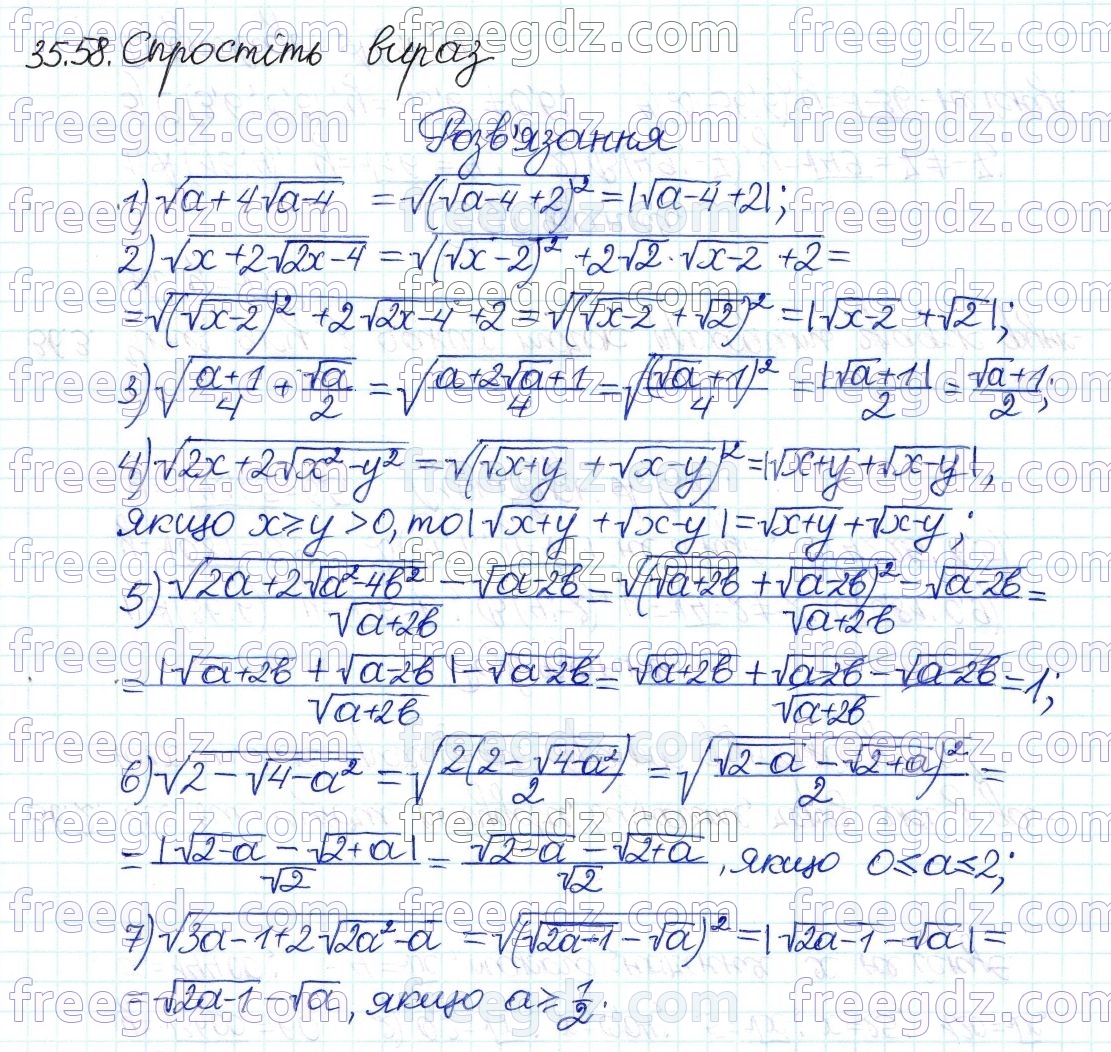 35.58. Спростіть вираз
Розв'язання
1) √(a+4√(a-4)) = √((√(a-4)+2)²) = |√(a-4)+2|;
2) √(x+2√(2x-4)) = √((√x-2)²+2√2·√(x-2)+2) =
= √((√(x-2))²+2√(2x-4)+2) = √((√(x-2)+√2)²) = |√(x-2)+√2|;
3) √((a+1)/4+√a/2) = √((a+2√a+1)/4) = √((√a+1)²/4) = |√a+1|/2 = (√a+1)/2;
4) √(2x+2√(x²-y²)) = √((√(x+y)+√(x-y))²) = |√(x+y)+√(x-y)|,
якщо x≥y>0, то |√(x+y)+√(x-y)| = √(x+y)+√(x-y);
5) (√(2a+2√(a²-4b²))-√(a-2b))/√(a+2b) = (√((√(a+2b)+√(a-2b))²)-√(a-2b))/√(a+2b) =
= (|√(a+2b)+√(a-2b)|-√(a-2b))/√(a+2b) = (√(a+2b)+√(a-2b)-√(a-2b))/√(a+2b) = 1;
6) √(2-√(4-a²)) = √(2(2-√(4-a²))/2) = √((√(2-a)-√(2+a))²/2) =
= |√(2-a)-√(2+a)|/√2 = (√(2-a)-√(2+a))/√2, якщо 0≤a≤2;
7) √(3a-1+2√(2a²-a)) = √((√(2a-1)-√a)²) = |√(2a-1)-√a| =
= √(2a-1)-√a, якщо a≥1/2.
freegdz.com